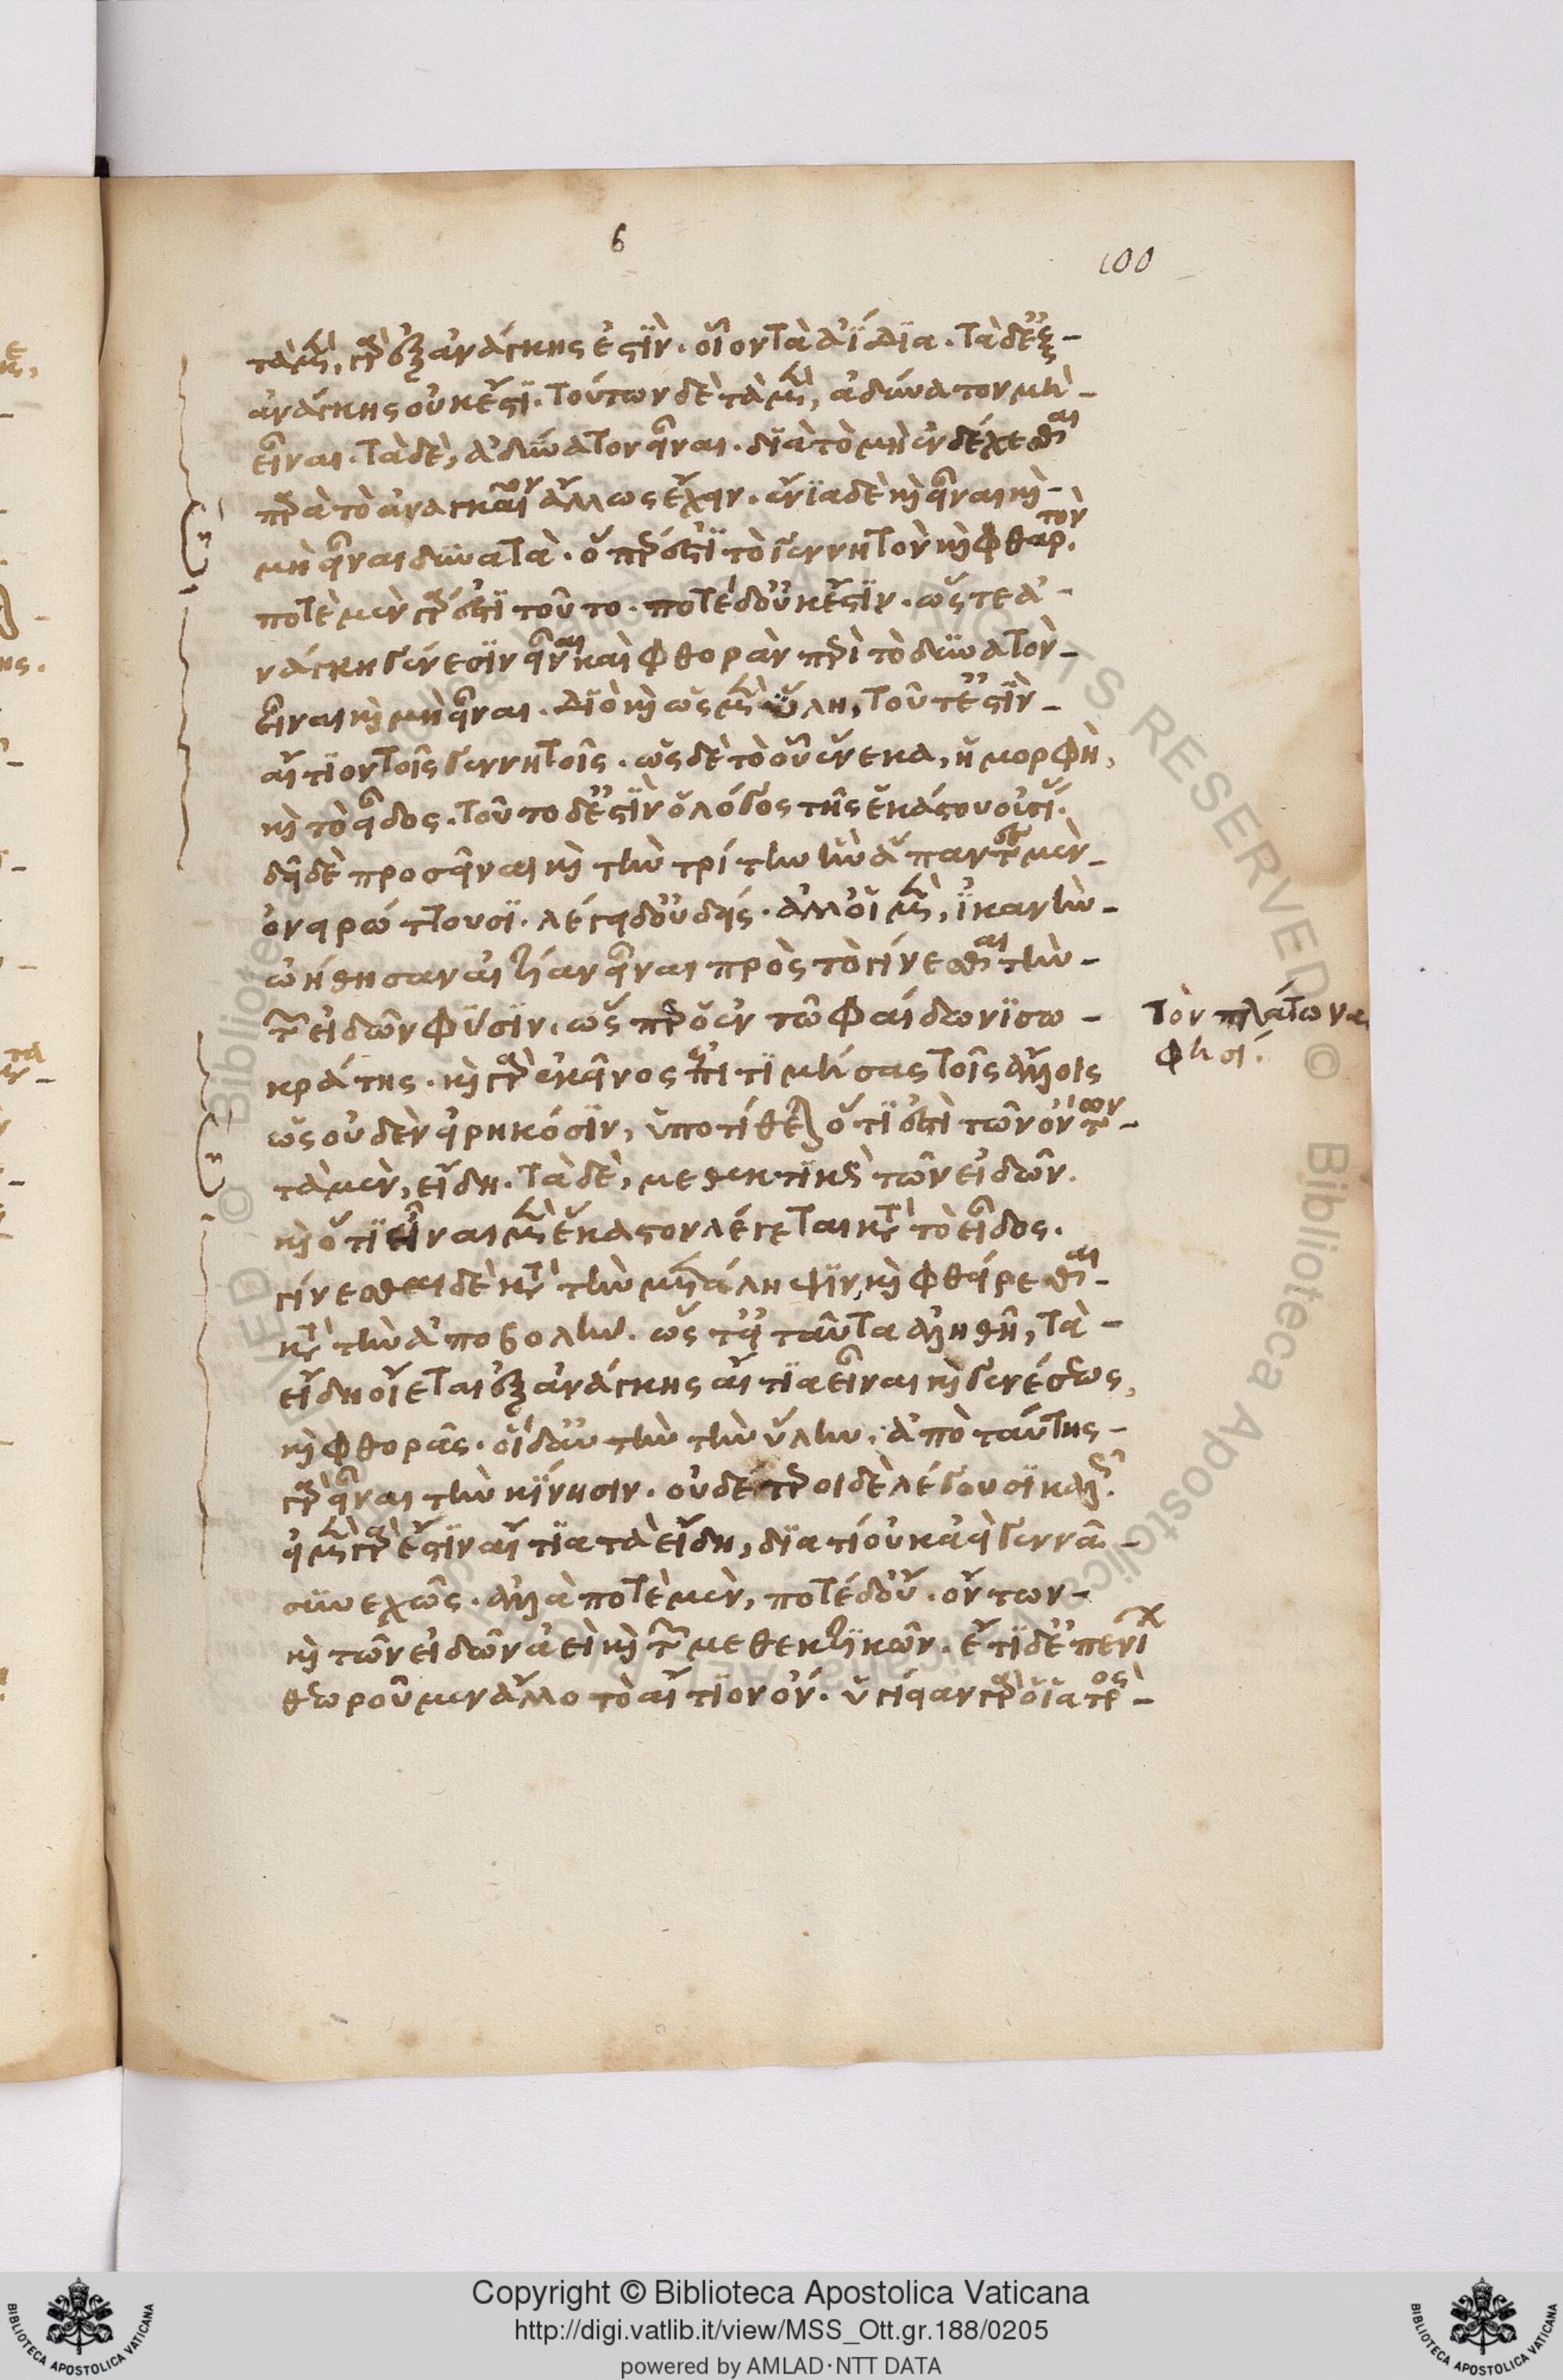 6
100
τὰ μὲν γὰρ ἐξ ἀνάγκης ἐστὶν. οἷον τὰ ἀΐδια. τὰ δ' ἐξ-
ἀνάγκης οὐκ ἔστι. τούτων δὲ τὰ μὲν, ἀδύνατον μὴ-
εἶναι. τὰ δὲ, ἀδύνατον εἶναι. διὰ τὸ μὴ ἐνδέχεσθαι
παρὰ τὸ ἀναγκαῖον ἄλλως ἔχειν. ἔνια δὲ καὶ εἶναι καὶ-
μὴ εἶναι δυνατὰ. ὅπερ ἐστὶ τὸ γεννητὸν καὶ φθαρτὸν.
ποτὲ μὲν γάρ ἐστι τοῦτο. ποτὲ δ' οὐκ ἔστιν. ὥστε ἀ-
νάγκη γένεσιν εἶναι καὶ φθορὰν περὶ τὸ δυνατὸν-
εἶναι καὶ μὴ εἶναι. διὸ καὶ ὡς μὲν ὕλη, τοῦτ' ἐστὶν-
αἴτιον τοῖς γεννητοῖς. ὡς δὲ τὸ οὗ ἕνεκα, ἡ μορφὴ,
καὶ τὸ εἶδος. τοῦτο δ' ἐστὶν ὁ λόγος τῆς ἑκάστου οὐσί.
δεῖ δὲ προσεῖναι καὶ τὴν τρίτην ἣν ἅπαντες μὲν-
ὀνειρώττουσι. λέγει δ' οὐδείς. ἀλλ' οἱ μὲν, ἱκανὴν-
ᾠήθησαν αἰτίαν εἶναι πρὸς τὸ γίνεσθαι τὴν-
τῶν εἰδῶν φύσιν. ὥσπερ ὁ ἐν τῶ φαίδωνι σω-
κράτης. καὶ γὰρ ἐκεῖνος ἐπιτιμήσας τοῖς ἄλλοις
ὡς οὐδὲν εἰρηκόσιν, ὑποτίθεται ὅτι ἐστὶ τῶν ὄντων-
τὰ μὲν, εἴδη. τὰ δὲ, μεθεκτικὰ τῶν εἰδῶν.
καὶ ὅτι εἶναι μὲν ἕκαστον λέγεται κατὰ τὸ εἶδος.
γίνεσθαι δὲ κατὰ τὴν μετάληψιν, καὶ φθείρεσθαι-
κατὰ τὴν ἀποβολὴν. ὥστ' εἰ ταῦτα ἀληθῆ, τὰ-
εἴδη οἴεται ἐξ ἀνάγκης αἴτια εἶναι καὶ γενέσεως,
καὶ φθορᾶς. οἱ δ' αὐτὴν τὴν ὕλην. ἀπὸ ταύτης-
γὰρ εἶναι τὴν κίνησιν. οὐδέτεροι δὲ λέγουσι καλῶς.
εἰ μὲν γὰρ ἐστὶν αἴτια τὰ εἴδη, διὰ τί οὐκ ἀεὶ γεννᾶ-
συνεχῶς. ἀλλὰ ποτὲ μὲν, ποτὲ δ' οὔ. ὄντων-
καὶ τῶν εἰδῶν ἀεὶ καὶ τῶν μεθεκτικῶν. ἔτι δ' ἐπ' ἐνί
θεωροῦμεν ἄλλο τὸ αἴτιον ὄν. ὑγίειαν γὰρ ὁ ἰατρὸς-
τὸν πλάτωνα
φησί.
Copyright © Biblioteca Apostolica Vaticana
http://digi.vatlib.it/view/MSS_Ott.gr.188/0205
powered by AMLAD·NTT DATA